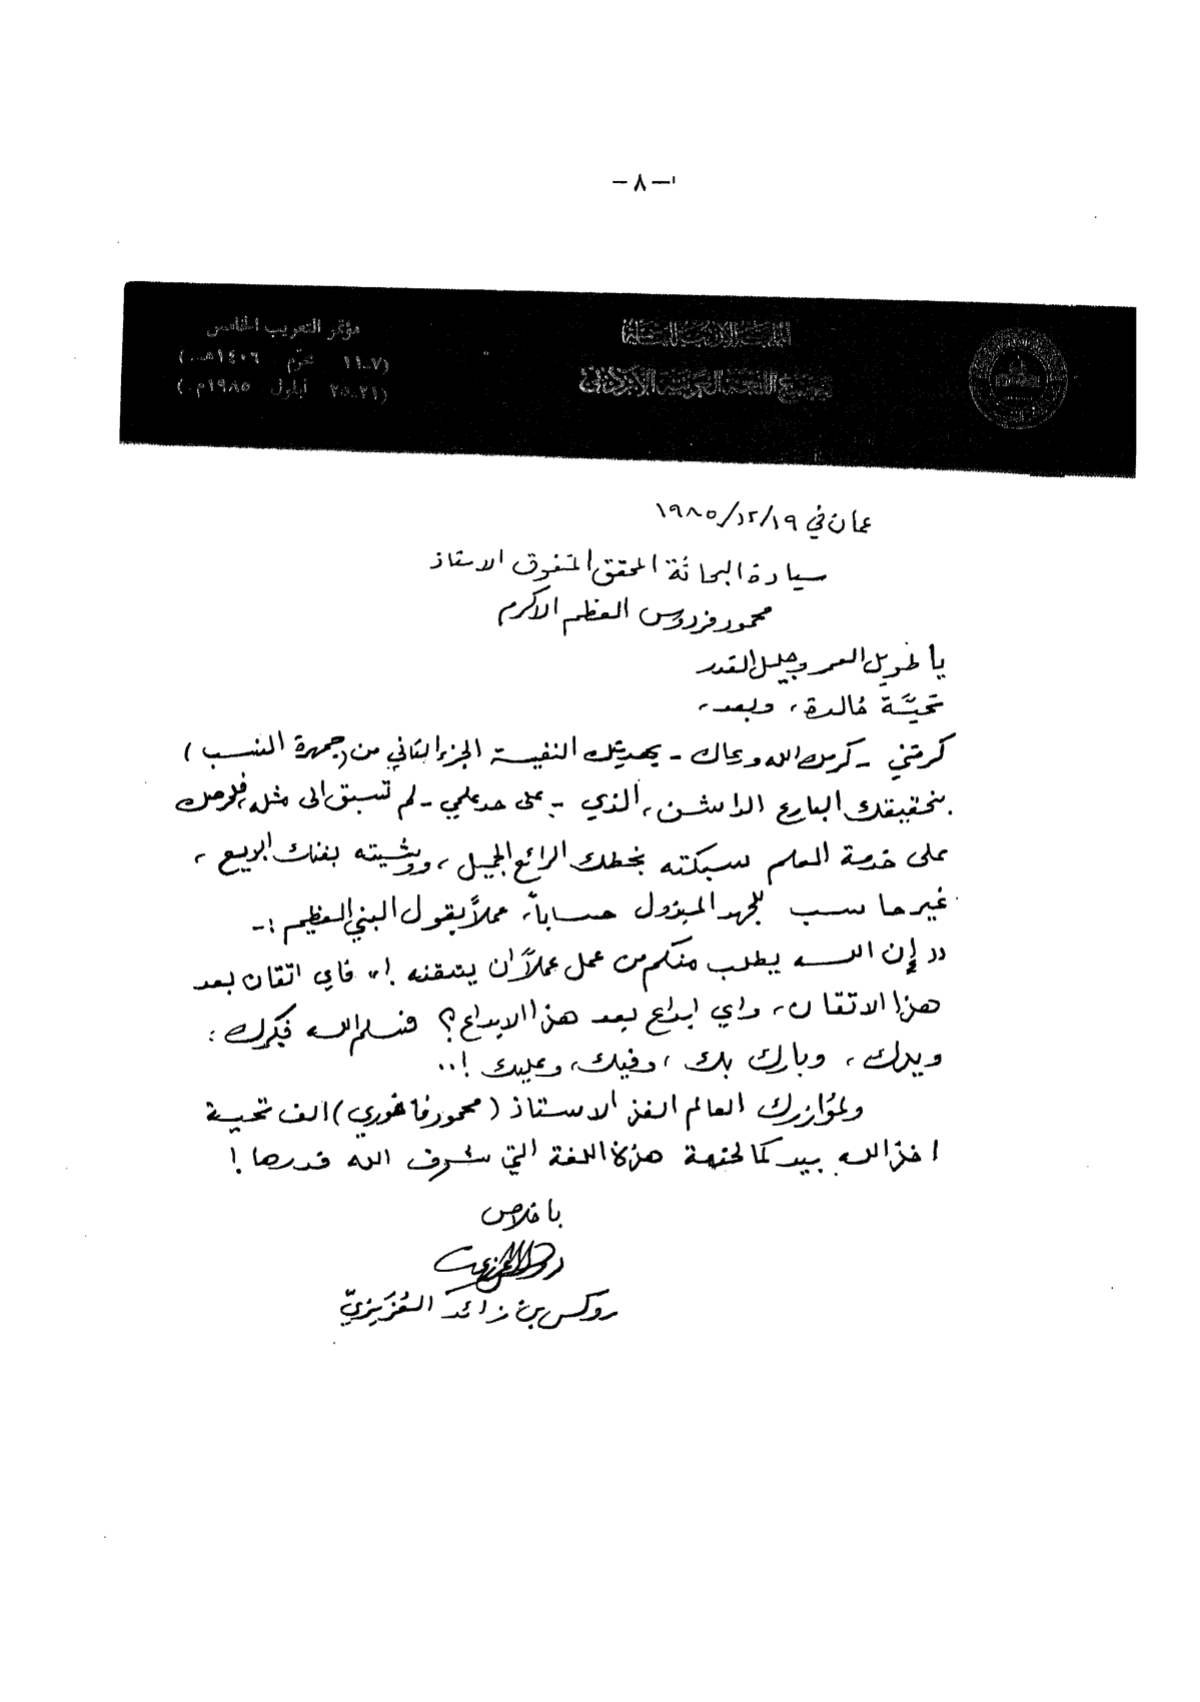 -٨-
المملكة الأردنية الهاشمية
مجمع اللغة العربية الأردني
مؤتمر التعريب الخامس
(٧-١١ محرّم ١٤٠٦هـ.)
(٢١-٢٥ أيلول ١٩٨٥م.)
عمان في ١٩/١٢/١٩٨٥
سيادة البحاثة المحقق المتفوق الاستاذ
محمود فردوس العظم الاكرم
يا طويل العمر وجليل القدر
تحيّة خالدة، وبعد،
كرمتني - كرمك الله ورعاك - بهديتك النفيسة الجزء الثاني من (جمهرة النسب)
بتحقيقك البارع الدامشن، الذي - على حد علمي - لم تسبق الى مثله، فلحرصك
على خدمة العلم سبكته بخطك الرائع الجميل، ووشيته بفنك البديع،
غير حاسب للجهد المبذول حساباً، عملاً بقول النبي العظيم :-
"إن الله يطلب منكم من عمل عملاً ان يتقنه !" فاي اتقان بعد
هذا الاتقان، واي ابداع بعد هذا الابداع؟ فسلم الله فكرك :
ويدك، وبارك بك، وفيك، وعليك !..
ولمؤازرك العالم الفذ الاستاذ (محمود فاخوري) الف تحية
اخذ الله بيدكما لخدمة هذه اللغة التي شرف الله قدرها !
باخلاص
روكس بن زائد العُزَيزيّ